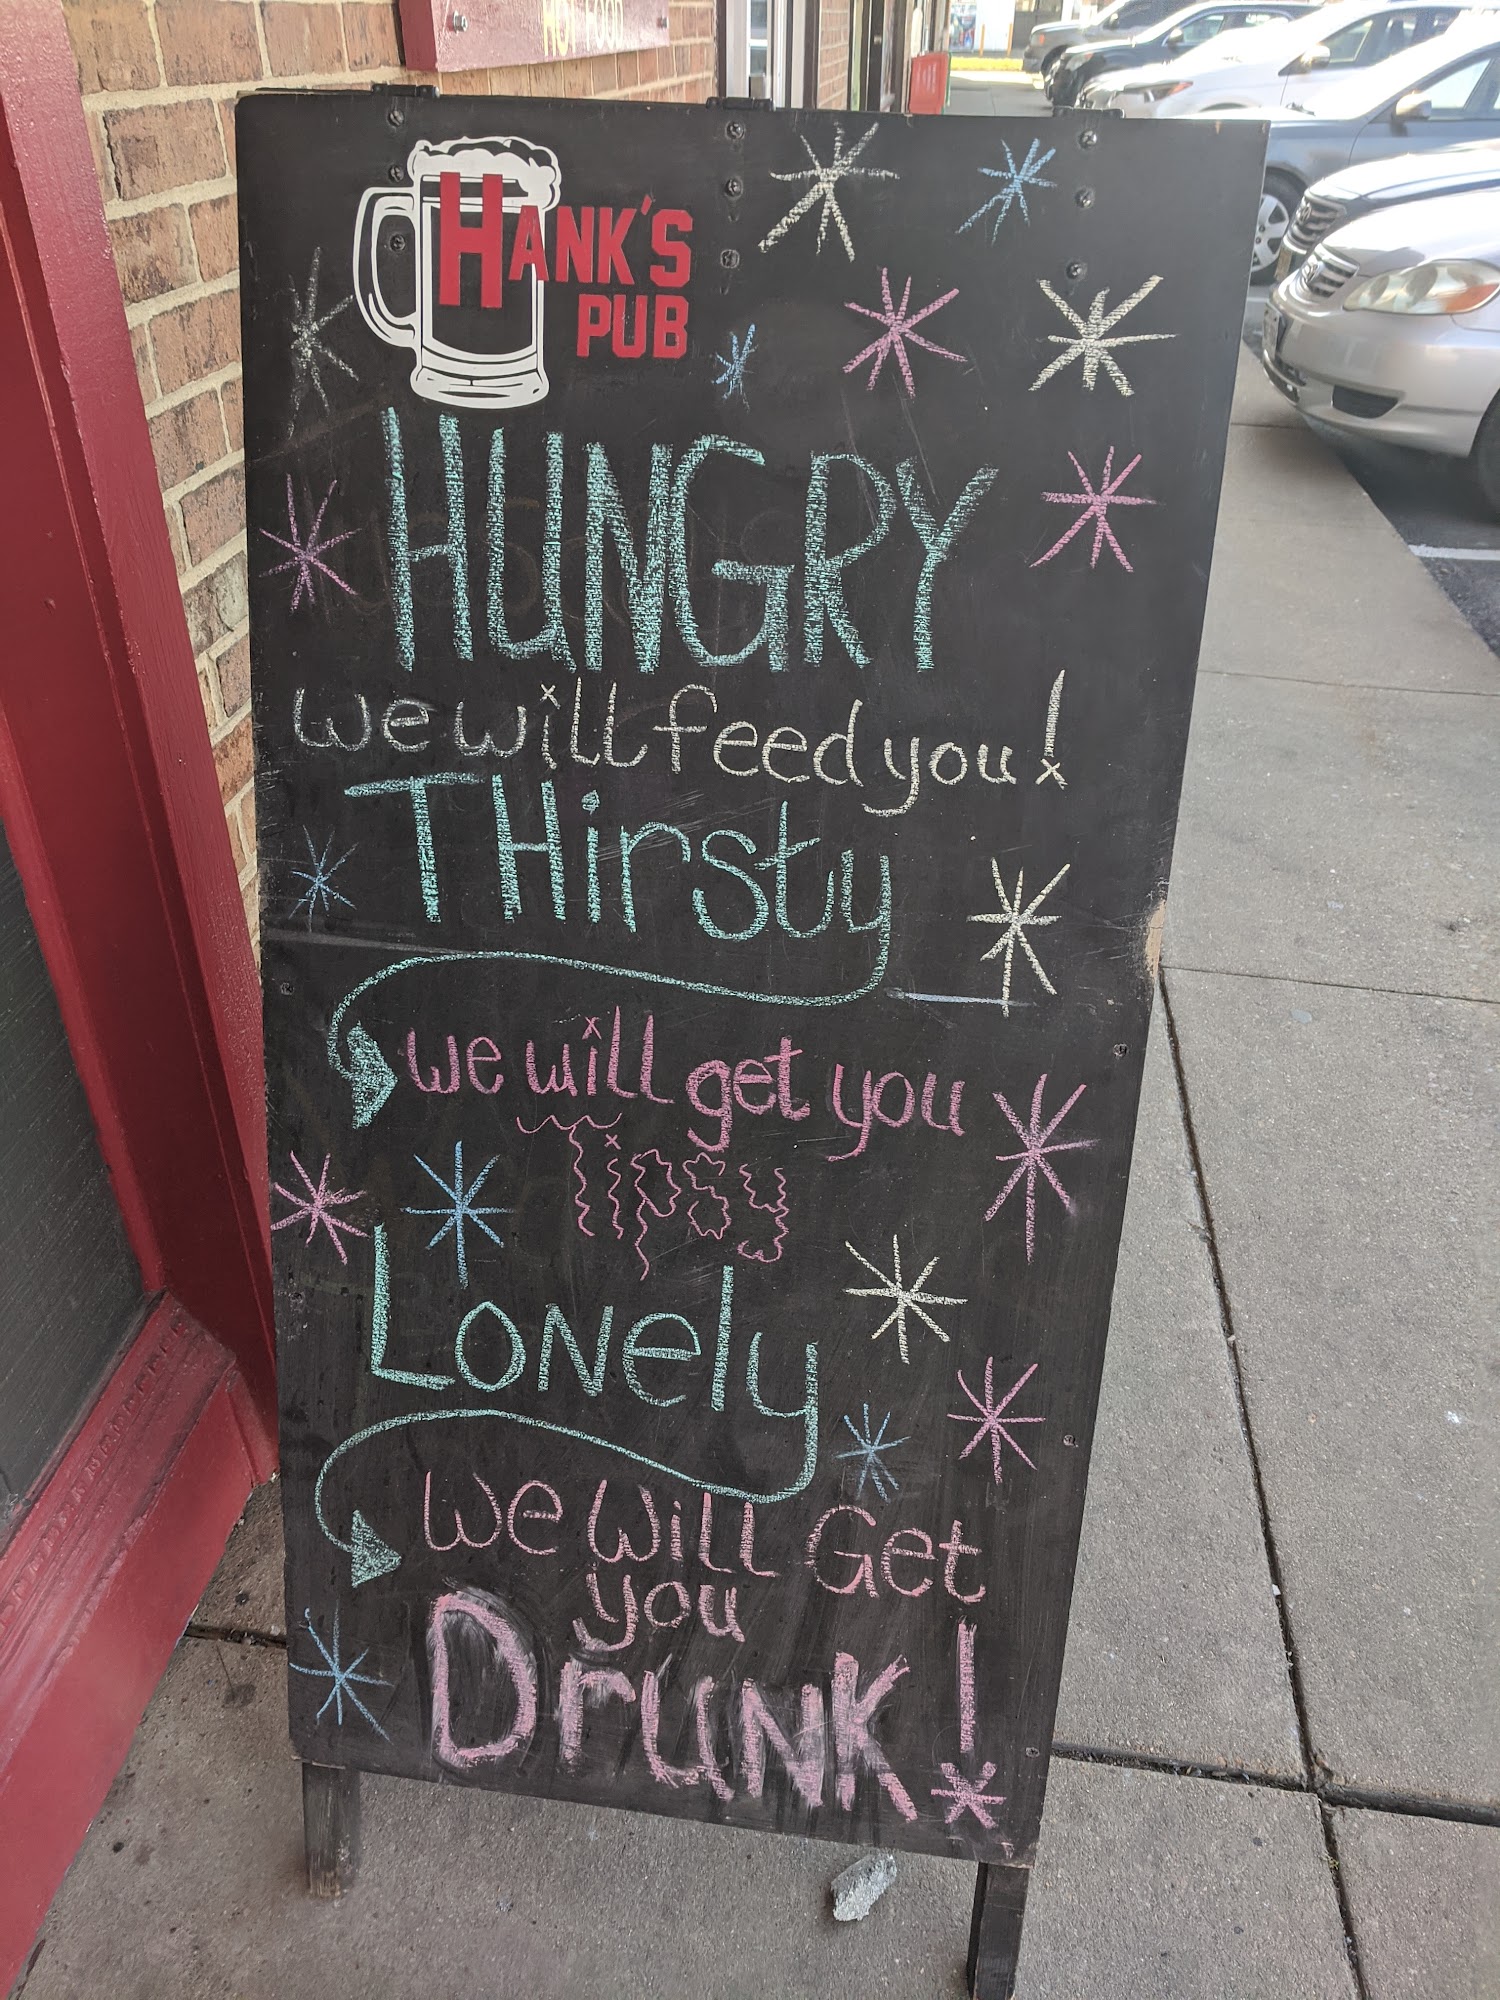 HOT FOOD
HANK'S
PUB
HUNGRY
we will feed you!
THirsty
we will get you
Tipsy
LoNely
We Will Get
you
DrUNK!